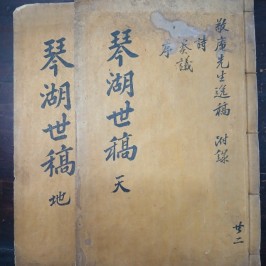 敬庵先生遺稿 附錄
詩
奏議
序
廿二
琴湖世稿 天
琴湖世稿 地